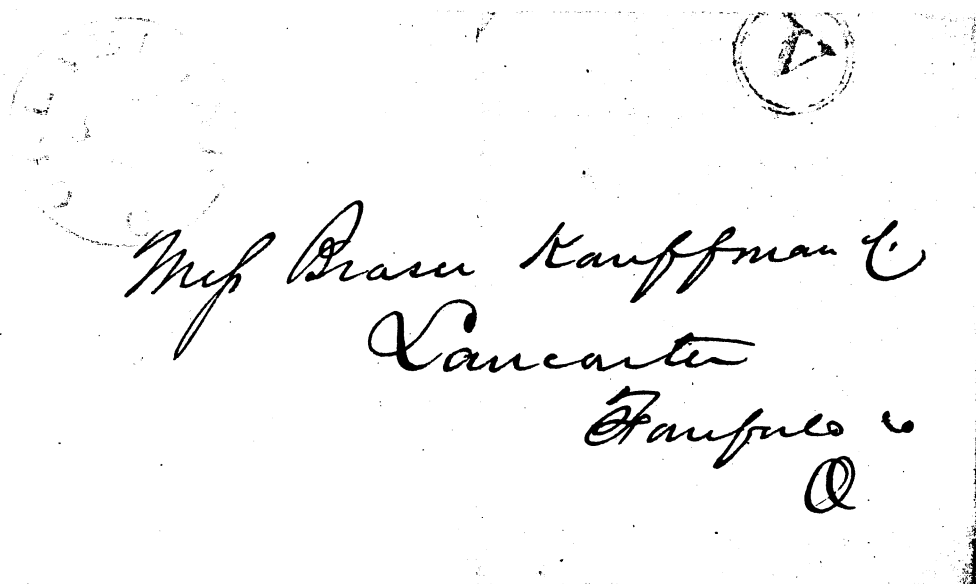 Mess Braser Kauffman C.
Lancaster
Fairfield Co
O